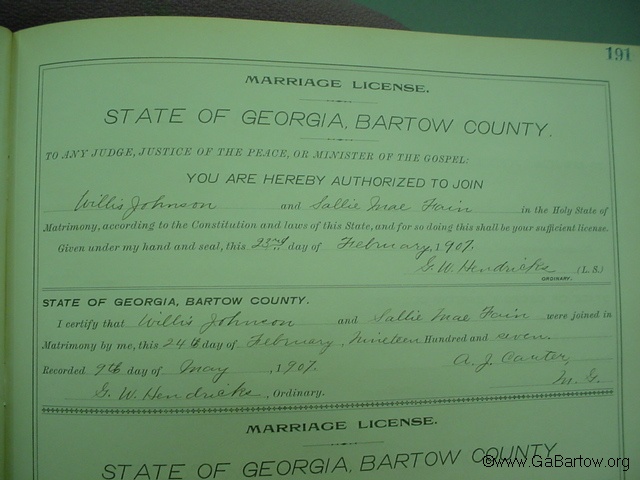 191
MARRIAGE LICENSE.
STATE OF GEORGIA, BARTOW COUNTY.
TO ANY JUDGE, JUSTICE OF THE PEACE, OR MINISTER OF THE GOSPEL:
YOU ARE HEREBY AUTHORIZED TO JOIN
Willis Johnson and Sallie Mae Fain in the Holy State of
Matrimony, according to the Constitution and laws of this State, and for so doing this shall be your sufficient license.
Given under my hand and seal, this 23rd day of February, 1907.
G. W. Hendricks (L. S.)
ORDINARY.
STATE OF GEORGIA, BARTOW COUNTY.
I certify that Willis Johnson and Sallie Mae Fain were joined in
Matrimony by me, this 24th day of February, Nineteen Hundred and seven.
Recorded 9th day of May, 1907. A. J. Carter,
G. W. Hendricks, Ordinary. M. G.
MARRIAGE LICENSE.
STATE OF GEORGIA, BARTOW COUNTY.
©www.GaBartow.org